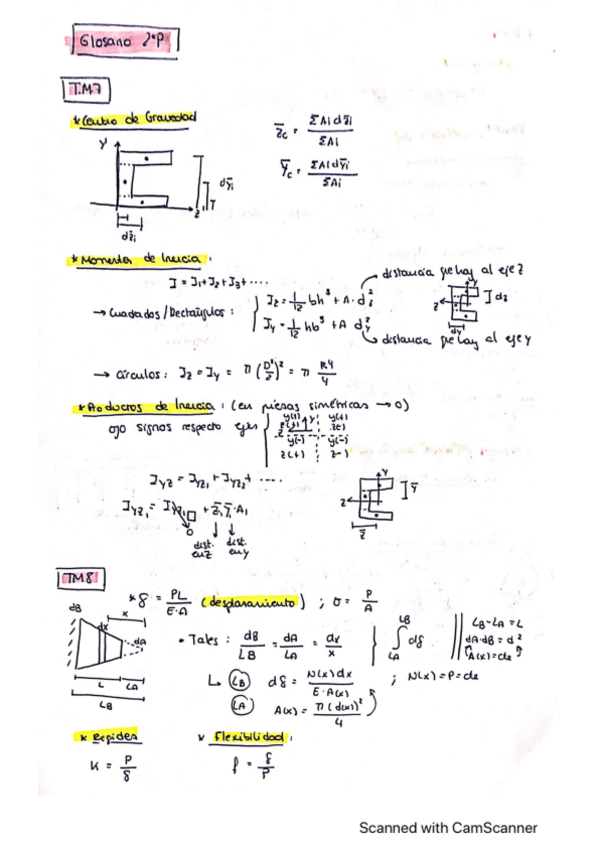 Glosario 2ºP
T.M7
* Centro de Gravedad
z̄c = ΣAi dz̄i / ΣAi
ȳc = ΣAi dȳi / ΣAi
Y
dȳi
ȳ
z
dz̄i
* Momentos de Inercia :
I = I1+I2+I3+ ....
distancia que hay al eje Z
→ Cuadrados/Rectángulos : Iz = 1/12 bh³ + A·dz²
Iy = 1/12 hb³ + A dy²
distancia que hay al eje y
Y
z
dz
dy
→ Círculos : Iz = Iy = π (D²/2)² = π R⁴/4
* Productos de Inercia : (en piezas simétricas → 0)
ojo signos respecto ejes
y(+) y(+)
z(+) z(-)
y(-) y(-)
z(+) z(-)
Iyz = Iyz1 + Iyz2 + ....
Iyz1 = Iyz1 + z̄1 ȳ1 · A1
0
dist. en z dist. en y
Y
z
ȳ
z̄
TM8
* δ = PL / E·A (desplazamiento) ; σ = P/A
dB
x
dx
dA
L LA
LB
• Tales : dB/LB = dA/LA = dx/x
∫ LB LA dδ
LB-LA = L
dA·dB = d²
A(x) = cte
↳ LB dδ = N(x) dx / E·A(x) ; N(x) = P = cte
LA A(x) = π(d(x))² / 4
* Rigidez * Flexibilidad :
K = P/δ f = δ/P
Scanned with CamScanner